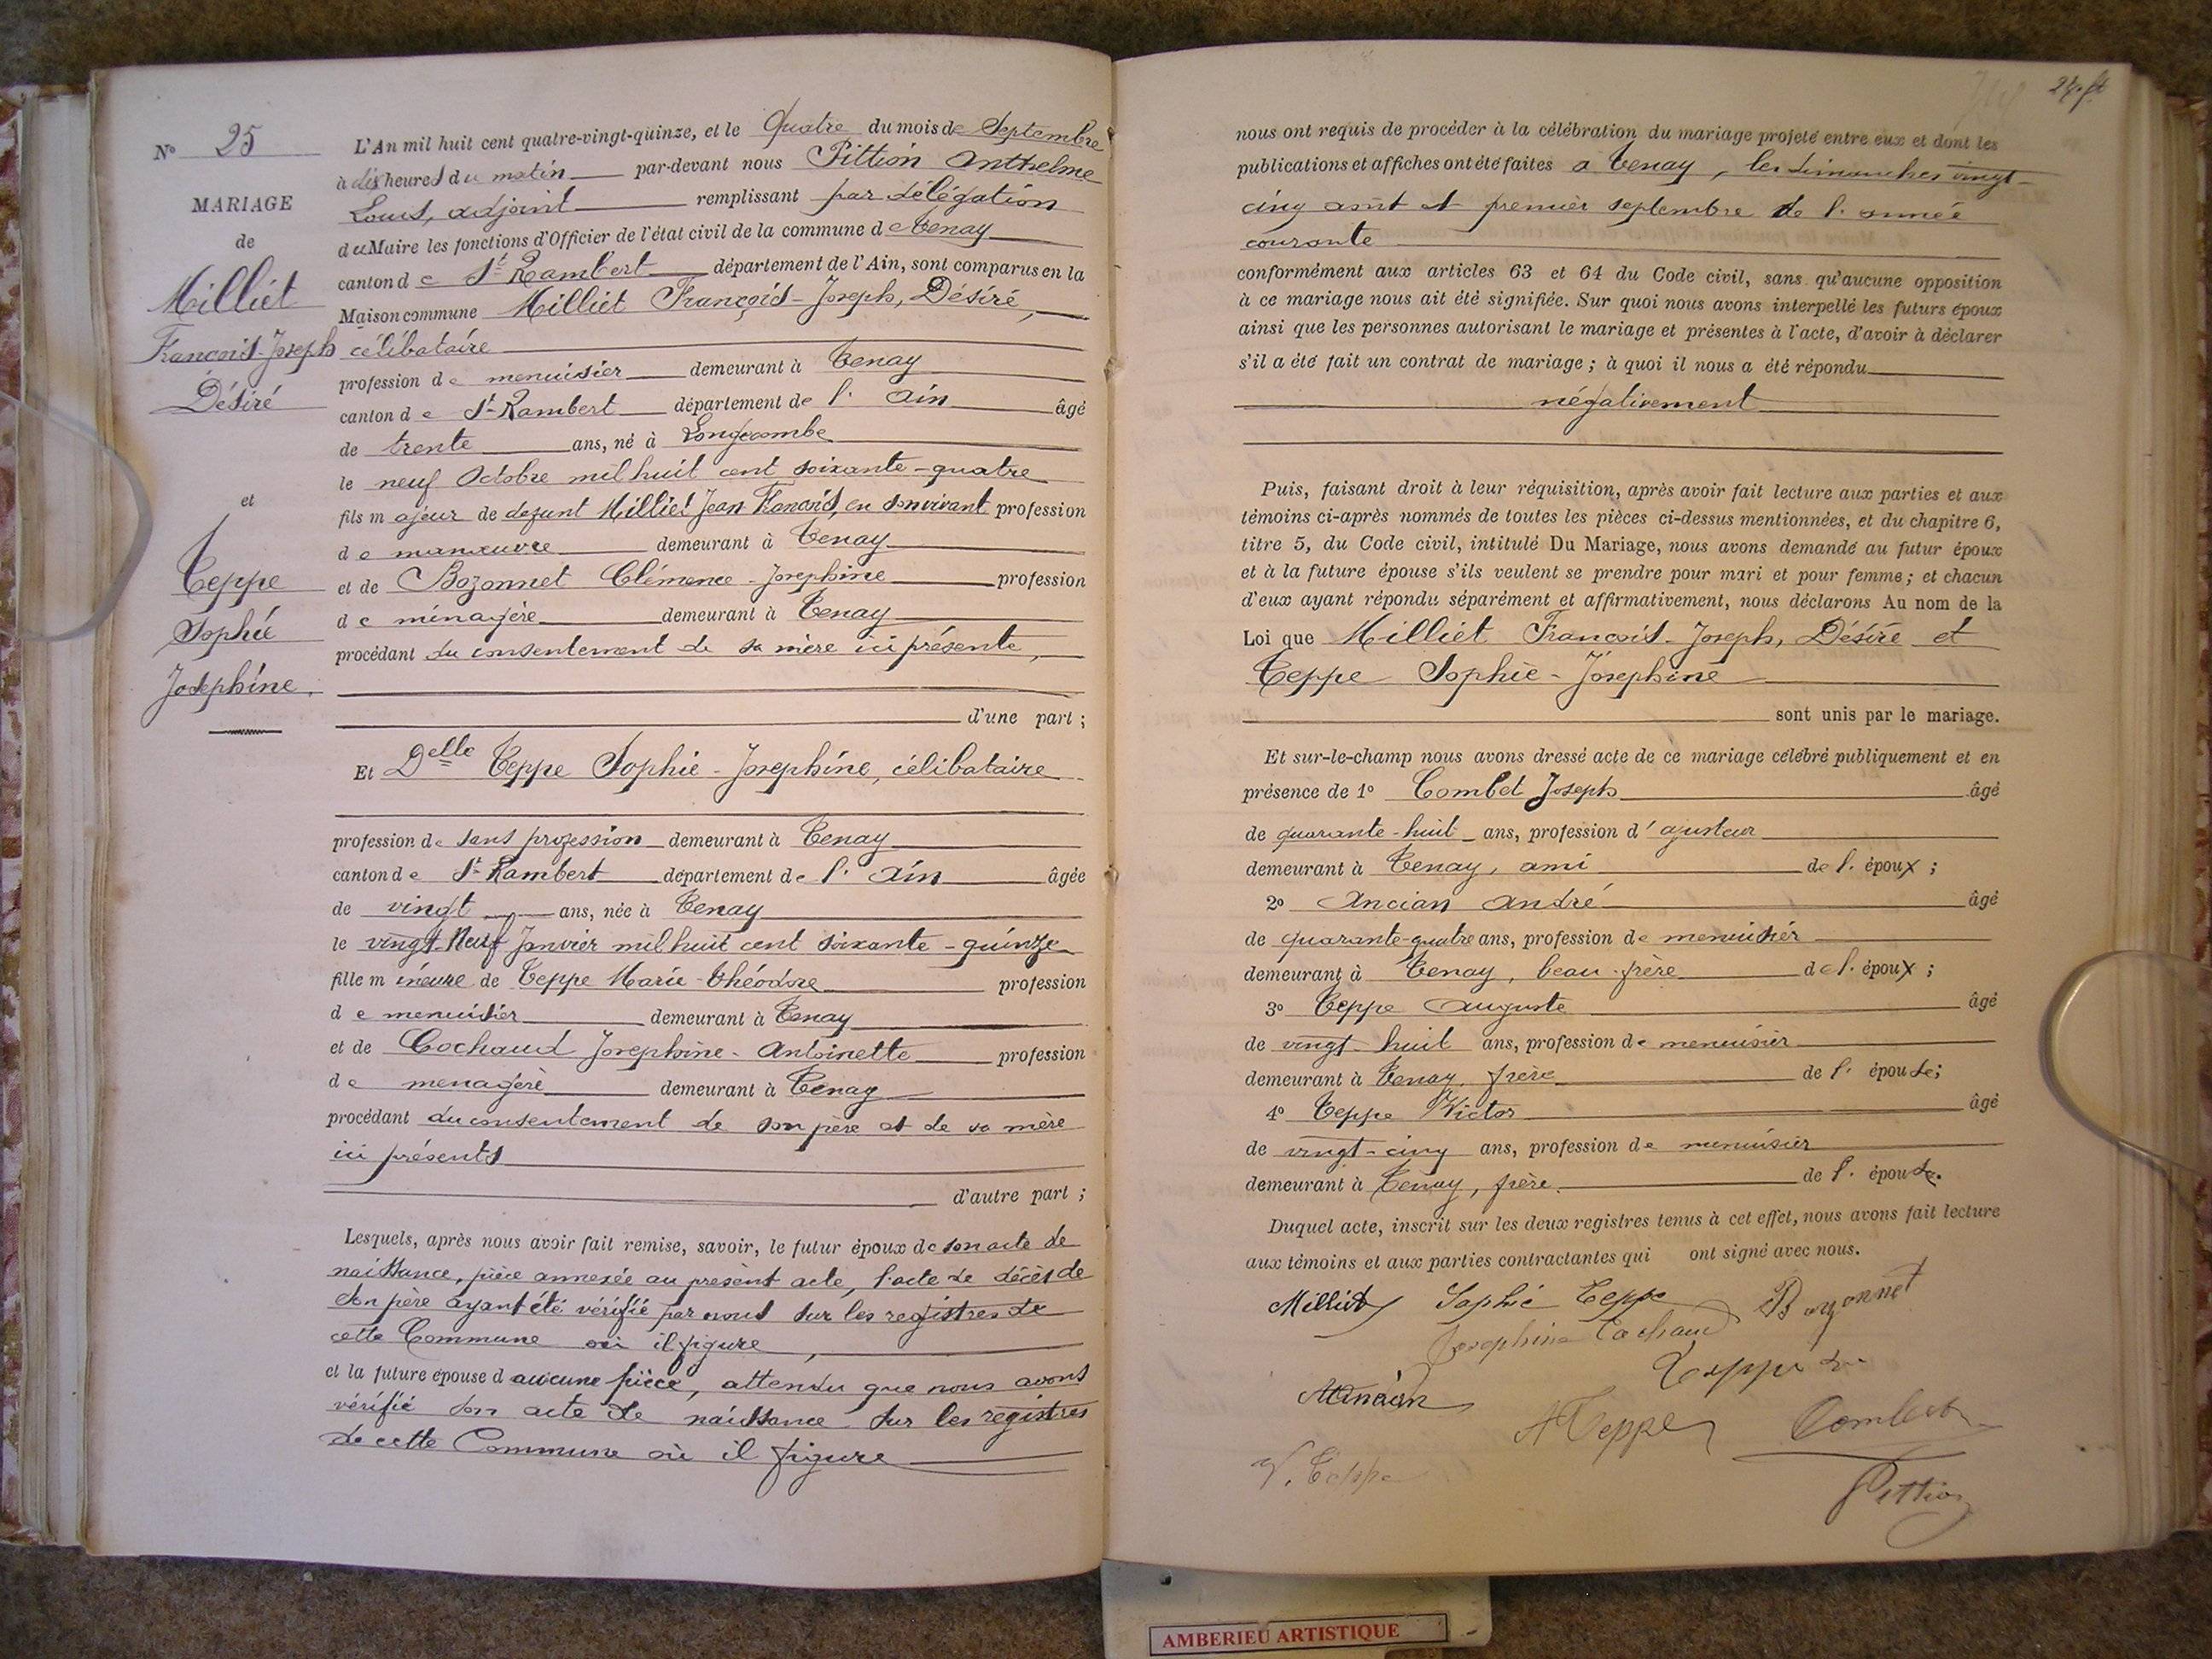 N° 25
MARIAGE
de
Milliet
François-Joseph
Désiré
et
Teppe
Sophie
Josephine.
L'An mil huit cent quatre-vingt-quinze, et le Quatre du mois de Septembre
à dix heures du matin par-devant nous Pittion Anthelme
Louis, adjoint remplissant par délégation
du Maire les fonctions d'Officier de l'état civil de la commune de Tenay
canton de St Rambert département de l'Ain, sont comparus en la
Maison commune Milliet François-Joseph, Désiré,
célibataire
profession de menuisier demeurant à Tenay
canton de St Rambert département de l'Ain âgé
de trente ans, né à Longecombe
le neuf Octobre mil huit cent soixante-quatre
fils majeur de defunt Milliet Jean François, en son vivant profession
de manœuvre demeurant à Tenay
et de Bozonnet Clémence-Josephine profession
de ménagère demeurant à Tenay
procédant du consentement de sa mère ici présente,
d'une part ;
Et Delle Teppe Sophie-Josephine, célibataire
profession de sans profession demeurant à Tenay
canton de St Rambert département de l'Ain âgée
de vingt ans, née à Tenay
le vingt-Neuf Janvier mil huit cent soixante-quinze
fille mineure de Teppe Marie-Théodore profession
de menuisier demeurant à Tenay
et de Cochaud Josephine-Antoinette profession
de menagère demeurant à Tenay
procédant du consentement de son père et de sa mère
ici présents
d'autre part ;
Lesquels, après nous avoir fait remise, savoir, le futur époux de son acte de
naissance, pièce annexée au présent acte, l'acte de décès de
son père ayant été vérifié par nous sur les registres de
cette Commune où il figure,
et la future épouse d'aucune pièce, attendu que nous avons
vérifié son acte de naissance sur les registres
de cette Commune où il figure
nous ont requis de procéder à la célébration du mariage projeté entre eux et dont les
publications et affiches ont été faites a Tenay, les dimanches vingt-
cinq août et premier septembre de l'année
courante
conformément aux articles 63 et 64 du Code civil, sans qu'aucune opposition
à ce mariage nous ait été signifiée. Sur quoi nous avons interpellé les futurs époux
ainsi que les personnes autorisant le mariage et présentes à l'acte, d'avoir à déclarer
s'il a été fait un contrat de mariage ; à quoi il nous a été répondu
négativement
Puis, faisant droit à leur réquisition, après avoir fait lecture aux parties et aux
témoins ci-après nommés de toutes les pièces ci-dessus mentionnées, et du chapitre 6,
titre 5, du Code civil, intitulé Du Mariage, nous avons demandé au futur époux
et à la future épouse s'ils veulent se prendre pour mari et pour femme ; et chacun
d'eux ayant répondu séparément et affirmativement, nous déclarons Au nom de la
Loi que Milliet François-Joseph, Désiré et
Teppe Sophie-Josephine
sont unis par le mariage.
Et sur-le-champ nous avons dressé acte de ce mariage célébré publiquement et en
présence de 1° Combet Joseph âgé
de quarante-huit ans, profession d'ajusteur
demeurant à Tenay, ami de l'époux ;
2° Ancian André âgé
de quarante-quatre ans, profession de menuisier
demeurant à Tenay, beau-frère de l'époux ;
3° Teppe Auguste âgé
de vingt-huit ans, profession de menuisier
demeurant à Tenay, frère de l'épouse ;
4° Teppe Victor âgé
de vingt-cinq ans, profession de menuisier
demeurant à Tenay, frère de l'épouse.
Duquel acte, inscrit sur les deux registres tenus à cet effet, nous avons fait lecture
aux témoins et aux parties contractantes qui ont signé avec nous.
Milliet Sophie Teppe Bozonnet
Josephine Cochaud
Teppe
Ancian
A Teppe Combet
V. Teppe
Pittion
AMBERIEU ARTISTIQUE